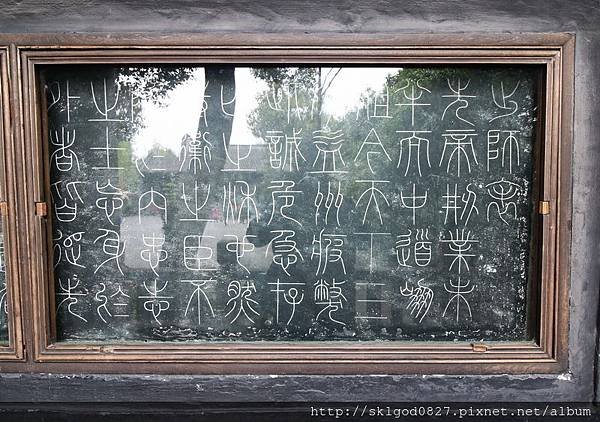 出師表
先帝創業未
半而中道崩
殂今天下三
分益州疲弊
此誠危急存
亡之秋也然
衛之臣不
內忠志
之士忘身於
外者皆追先
http://sklgod0827.pixnet.net/album